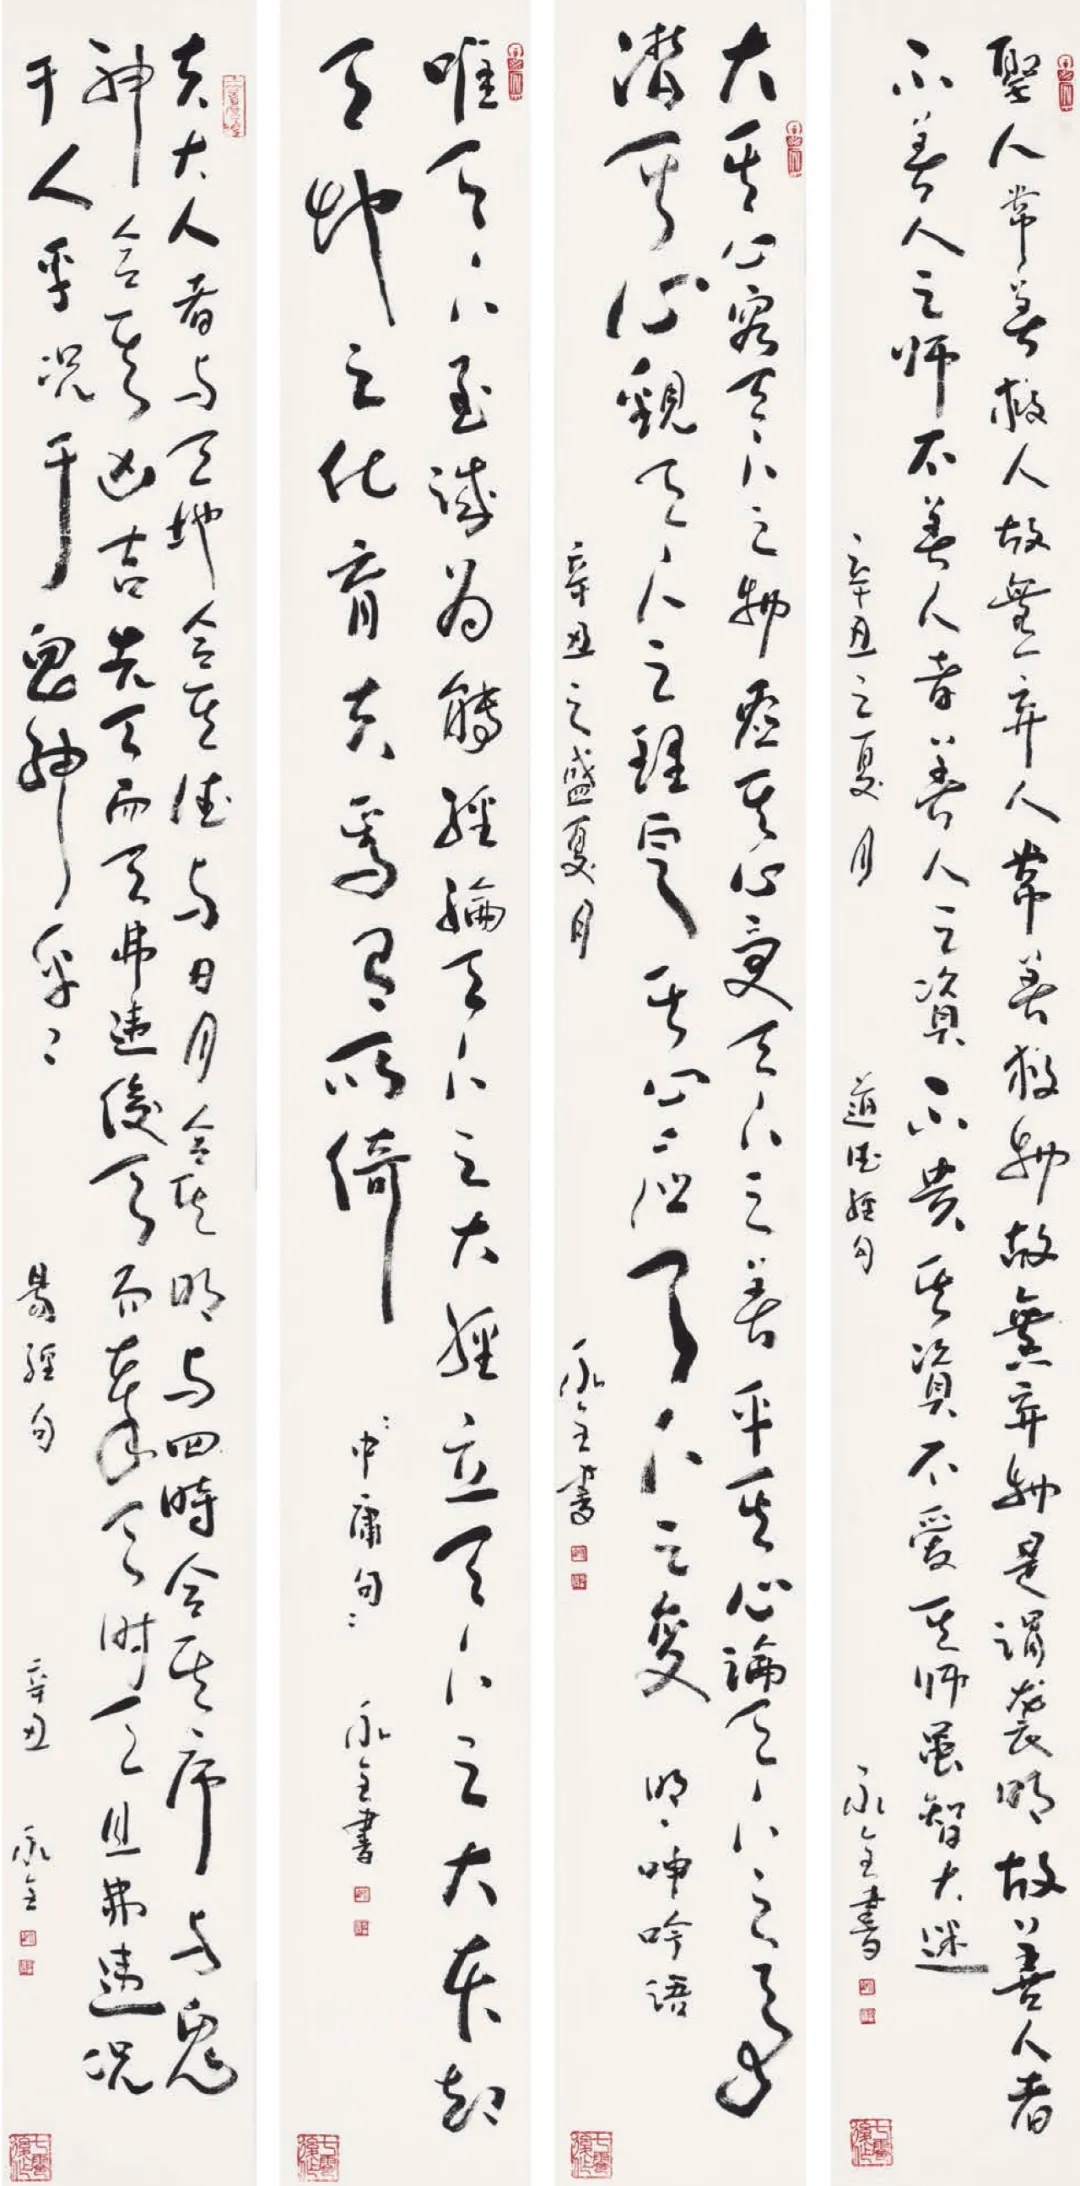 聖人常善救人故無弃人常善救物故無弃物是謂袭明故善人者
不善人之师不善人者善人之資不贵其資不爱其师虽智大迷
辛丑之夏月
道德經句
永全書
大其心容天下之物虚其心受天下之善平其心論天下之事
潜其心觀天下之理定其心应天下之变
明呻吟语
辛丑之盛夏月
永全書
唯天下至诚为能經綸天下之大經立天下之大本知
天地之化育夫焉有所倚
中庸句
永全書
夫大人者与天地合其德与日月合其明与四時合其序与鬼
神合其凶吉先天而天弗违後天而奉天时天且弗违况
于人乎况于鬼神乎
易經句
辛丑
永全